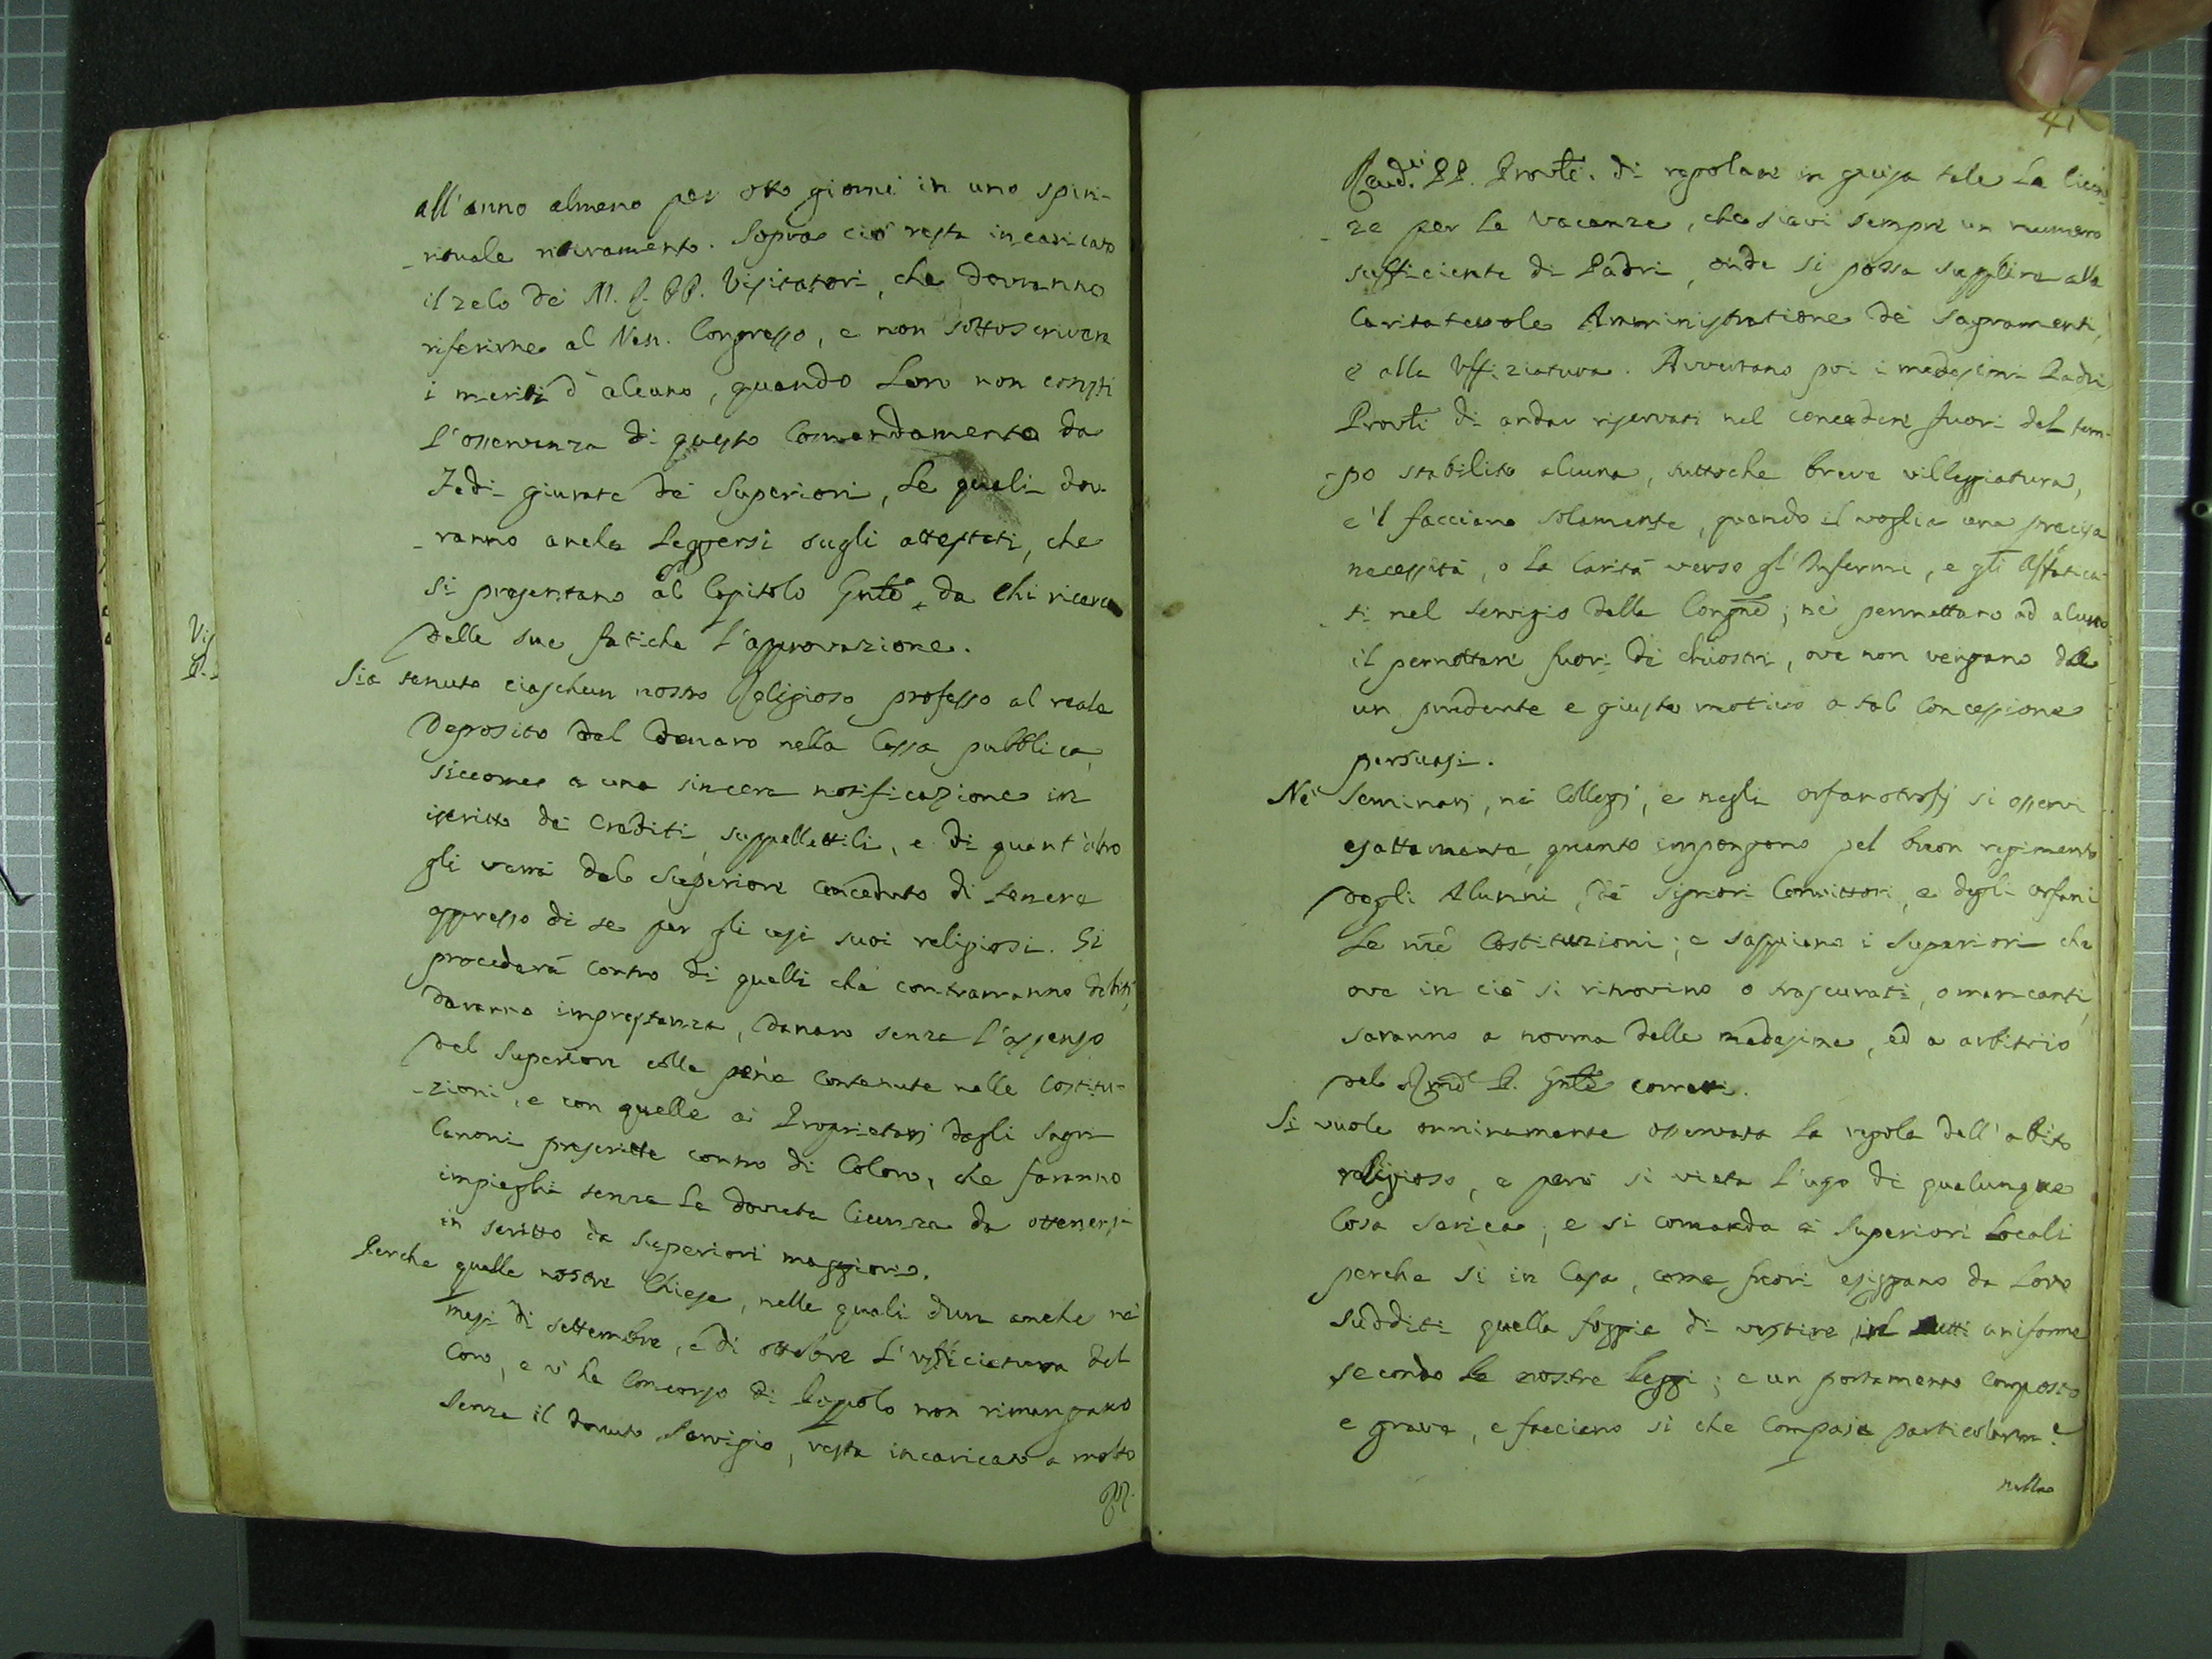 all'anno almeno per otto giorni in uno spiri-
-rituale ritiramento. Sopra ciò resta incaricato
il zelo de' M. R. PP. Visitatori, che dovranno
riferirne al Ven. Congresso, e non sottoscrivere
i meriti d'alcuno, quando loro non consti
l'osservanza di questo Comandamento da
Fedi giurate de' Superiori, le quali dov-
-ranno anche leggersi sugli attestati, che
si presentano al Capitolo Gnle da chi ricerca
delle sue fatiche l'approvazione.
Sia tenuto ciaschun nostro Religioso professo al reale
Deposito del Danaro nella Cassa pubblica,
siccome a una sincera notificazione in
iscritto de' Crediti, suppellettili, e di quant'altro
gli verrà dal Superiore conceduto di tenere
appresso di se per gli usi suoi religiosi. Si
procederà contro di quelli che contrarranno Debiti,
daranno imprestanza, danaro senza l'assenso
del Superiore colle pene contenute nelle Costitu-
-zioni, e con quelle ai Proprietarj dagli Sagri
Canoni prescritte contro di Coloro, che faranno
impieghi senza la dovuta licenza da ottenersi
in scritto da Superiori maggiori.
Perche quelle nostre Chiese, nelle quali dura anche ne'
mesi di settembre, e di ottobre l'Ufficiatura del
Coro, e v'ha Concorso di Popolo non rimangano
senza il dovuto Servigio, resta incaricato a molto
RR.
41
Rendi PP. Provli. di regolare in guisa tale la licen-
-ze per le Vacanze, che siavi sempre un numero
sufficiente di Padri, onde si possa supplire alla
Caritatevole Amministratione de' Sagramenti,
e alla Uffiziatura. Avvertano poi i medesimi Padri
Provli di andar riservati nel concedere fuori del tem-
-po stabilito alcuna, tuttoche breve villeggiatura,
e'l facciano solamente, quando il voglia una precisa
necessità, o la Carità verso gl'Infermi, e gli Affatica-
-ti nel servigio della Congne; nè permettano ad alcuno
il pernottare fuori de' chiostri, ove non vengano da
un prudente e giusto motivo a tal Concessione
persuasi.
Ne' Seminarj, ne' Collegj, e negli orfanotrofj si osservi
esattamente, quanto impongono pel buon regimento
degli Alunni, de' Signori Convittori, e degli orfani
le nre Costituzioni; e sappiano i Superiori che
ove in ciò si ritrovino o trascurati, o mancanti,
saranno a norma delle medesime, ed a arbitrio
del Rmo P. Gnle corretti.
Si vuole onninamente osservata la regola dell'abito
religioso, e però si vieta l'uso di qualunque
Cosa serica; e si comanda ai Superiori Locali
perche sì in Casa, come fuori esiggano da loro
sudditi quella foggia di vestire in tutti uniforme
secondo le nostre leggi; e un portamento Composto
e grave, e facciano sì che Compaja particolarme
nella